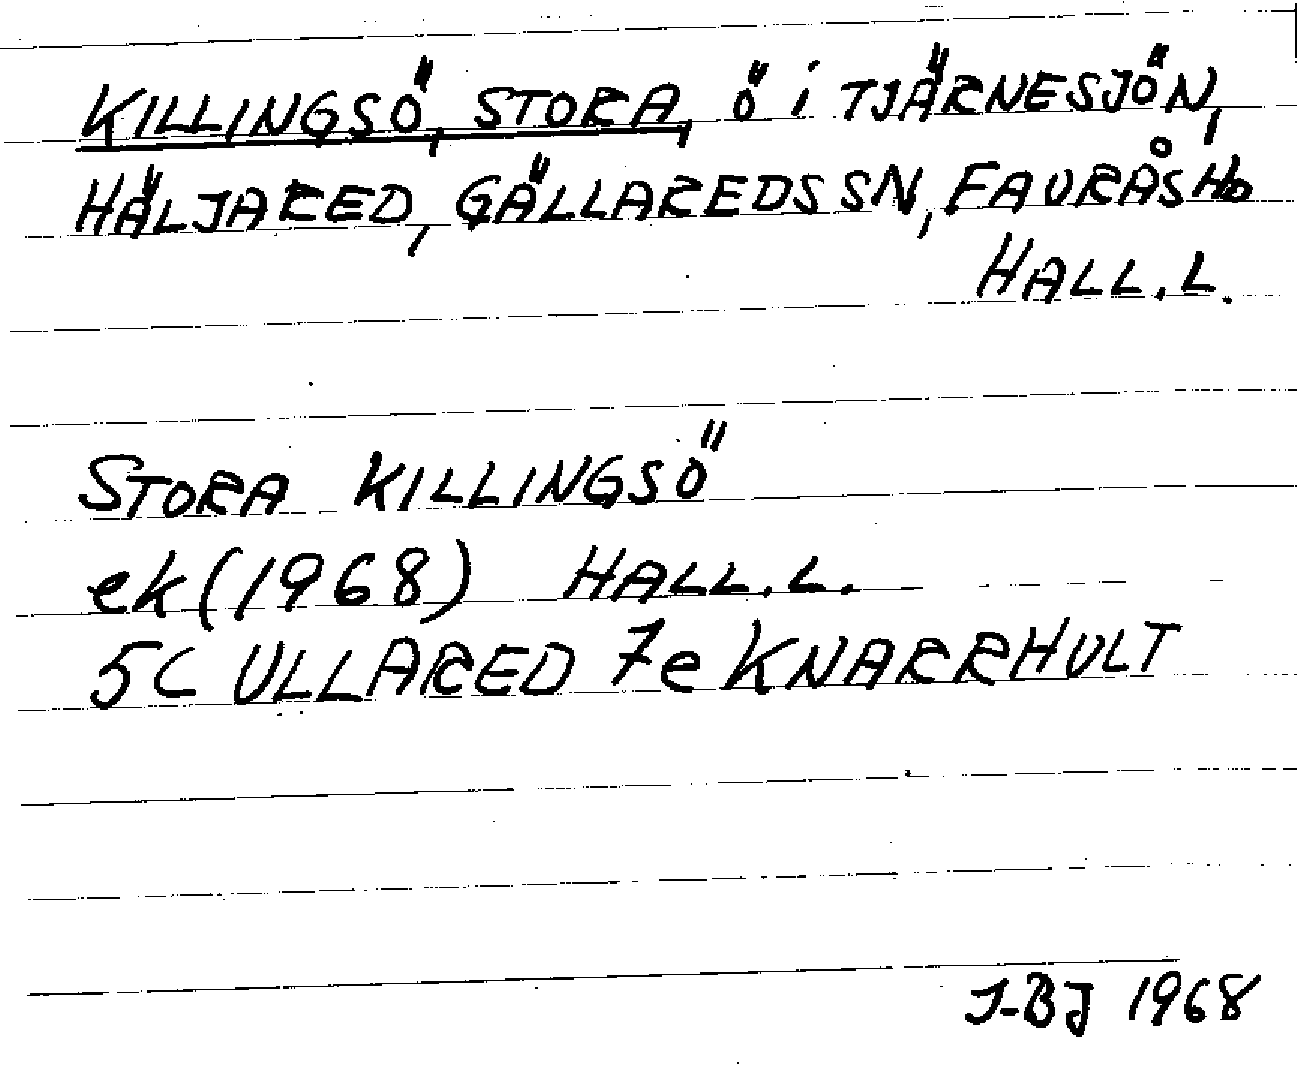 KILLINGSÖ, STORA, ö i TJÄRNESJÖN,
HÄLJARED, GÄLLAREDS SN, FAURÅS Hd
HALL. L.
STORA KILLINGSÖ
ek (1968) HALL. L.
5C ULLARED 7e KNARRHULT
J-BJ 1968